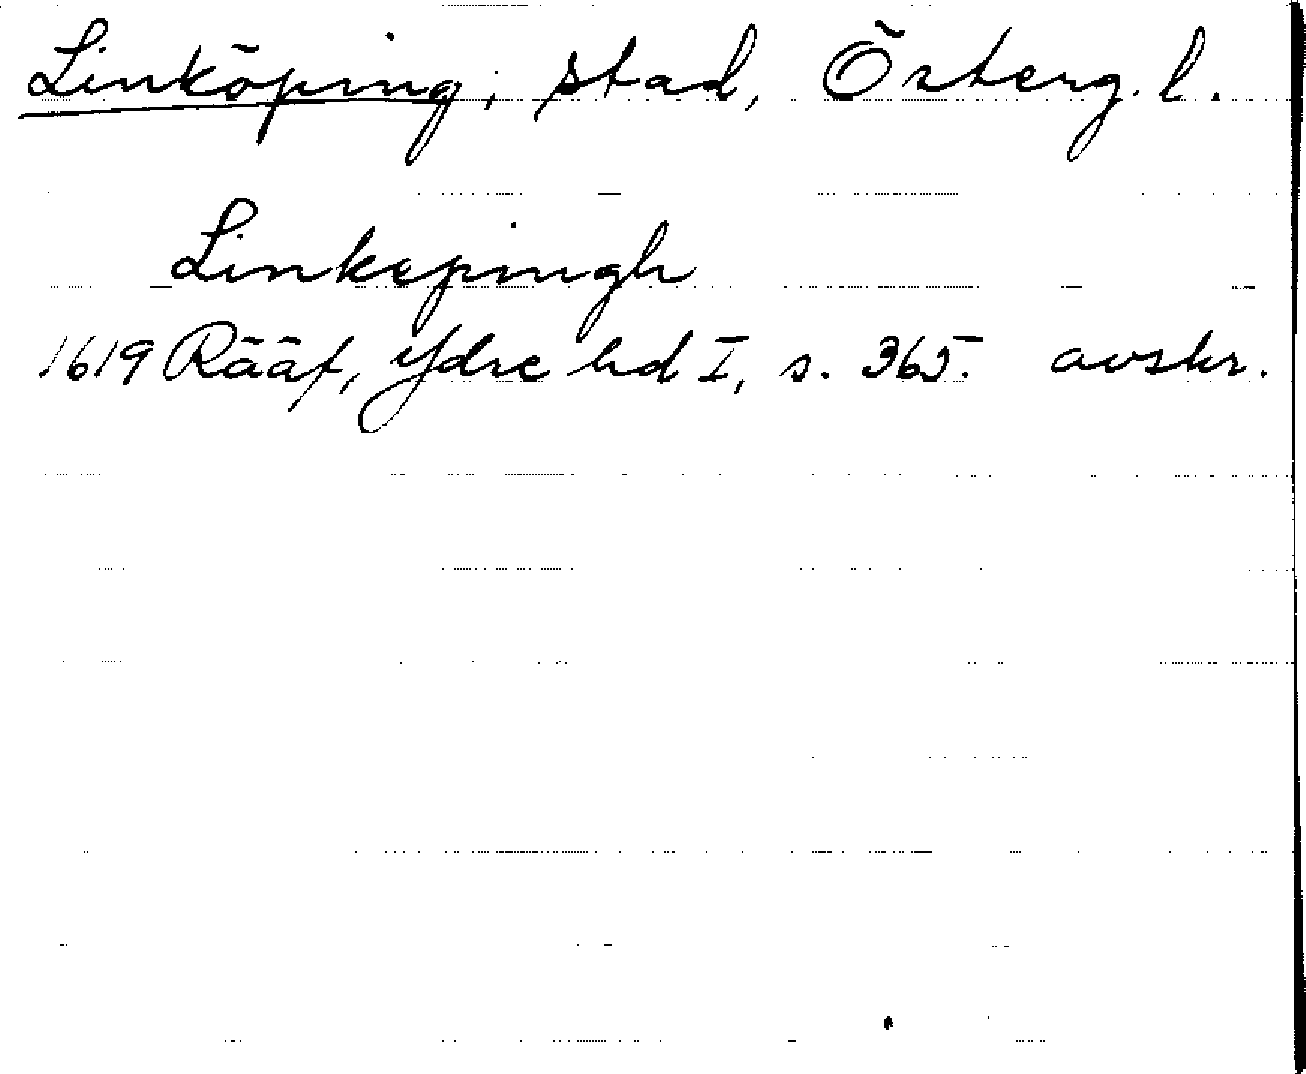 Linköping, stad, Österg. l.
Linkepingh
1619 Rääf, Ydre hd I, s. 365. avskr.